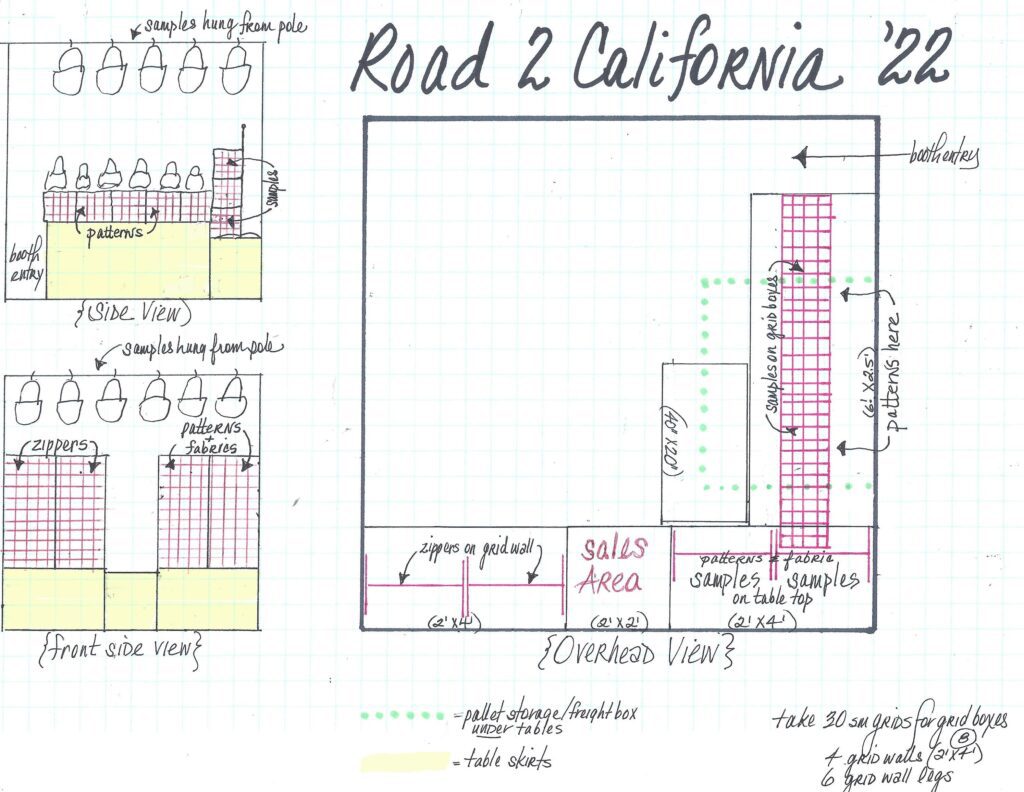 samples hung from pole
Road 2 California '22
booth entry
samples
patterns
booth
entry
{Side View}
samples hung from pole
zippers
patterns
+
fabrics
{front side view}
samples on grid boxes
patterns here
(6' x 2.5')
(40" x 20")
zippers on gridwall
(2' x 4')
sales
Area
(2' x 2')
patterns & fabric
samples samples
on table top
(2' x 4')
{Overhead View}
= pallet storage/freight box
under tables
= table skirts
take 30 sm grids for grid boxes
4 grid walls (2' x 4')
6 grid wall legs